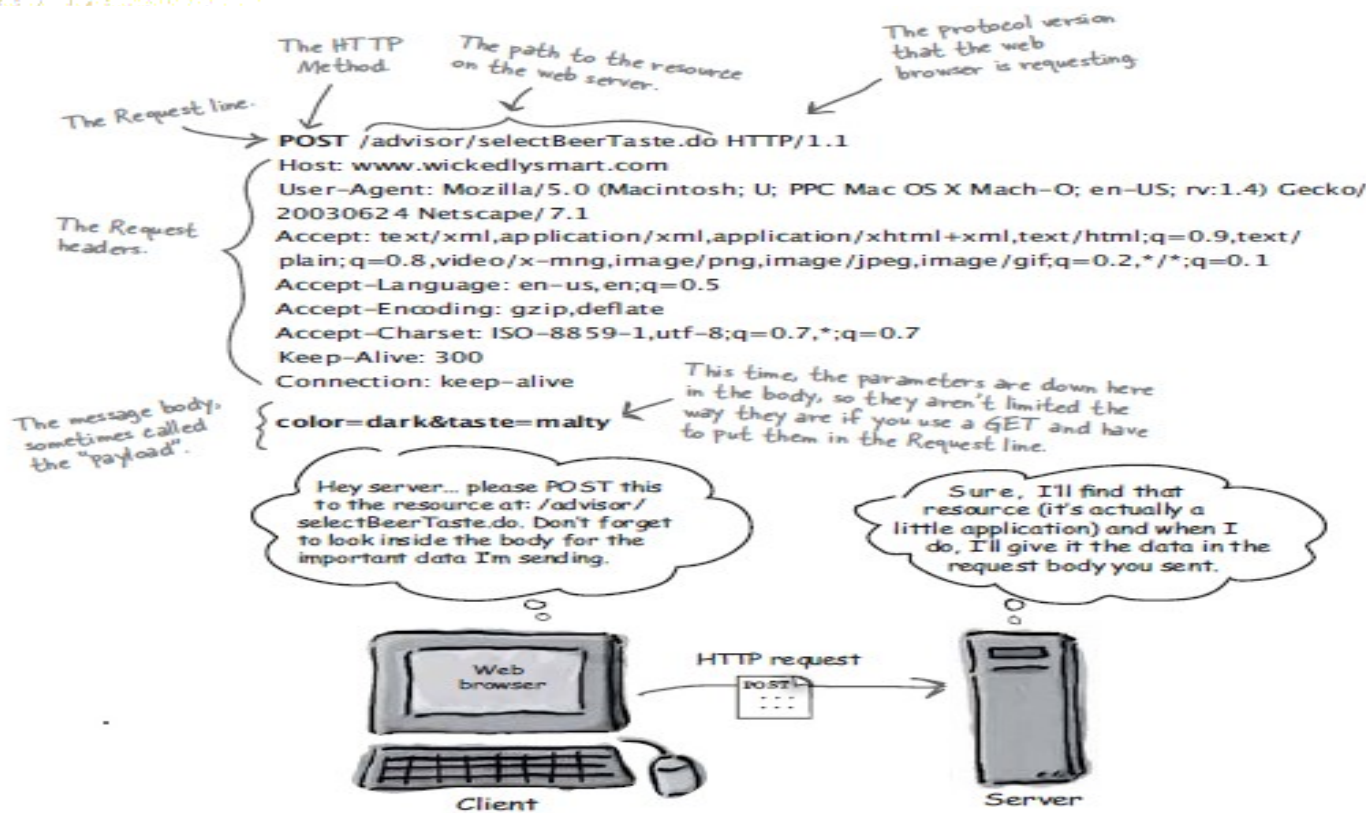 The HTTP
Method
The path to the resource
on the web server.
The protocol version
that the web
browser is requesting.
The Request line.
POST /advisor/selectBeerTaste.do HTTP/1.1
Host: www.wickedlysmart.com
User-Agent: Mozilla/5.0 (Macintosh; U; PPC Mac OS X Mach-O; en-US; rv:1.4) Gecko/
20030624 Netscape/7.1
Accept: text/xml,application/xml,application/xhtml+xml,text/html;q=0.9,text/
plain;q=0.8,video/x-mng,image/png,image/jpeg,image/gif;q=0.2,*/*;q=0.1
Accept-Language: en-us,en;q=0.5
Accept-Encoding: gzip,deflate
Accept-Charset: ISO-8859-1,utf-8;q=0.7,*;q=0.7
Keep-Alive: 300
Connection: keep-alive
The Request
headers.
The message body,
sometimes called
the "payload".
color=dark&taste=malty
This time, the parameters are down here
in the body, so they aren't limited the
way they are if you use a GET and have
to put them in the Request line.
Hey server... please POST this
to the resource at: /advisor/
selectBeerTaste.do. Don't forget
to look inside the body for the
important data I'm sending.
Sure, I'll find that
resource (it's actually a
little application) and when I
do, I'll give it the data in the
request body you sent.
Web
browser
HTTP request
POST
Client
Server